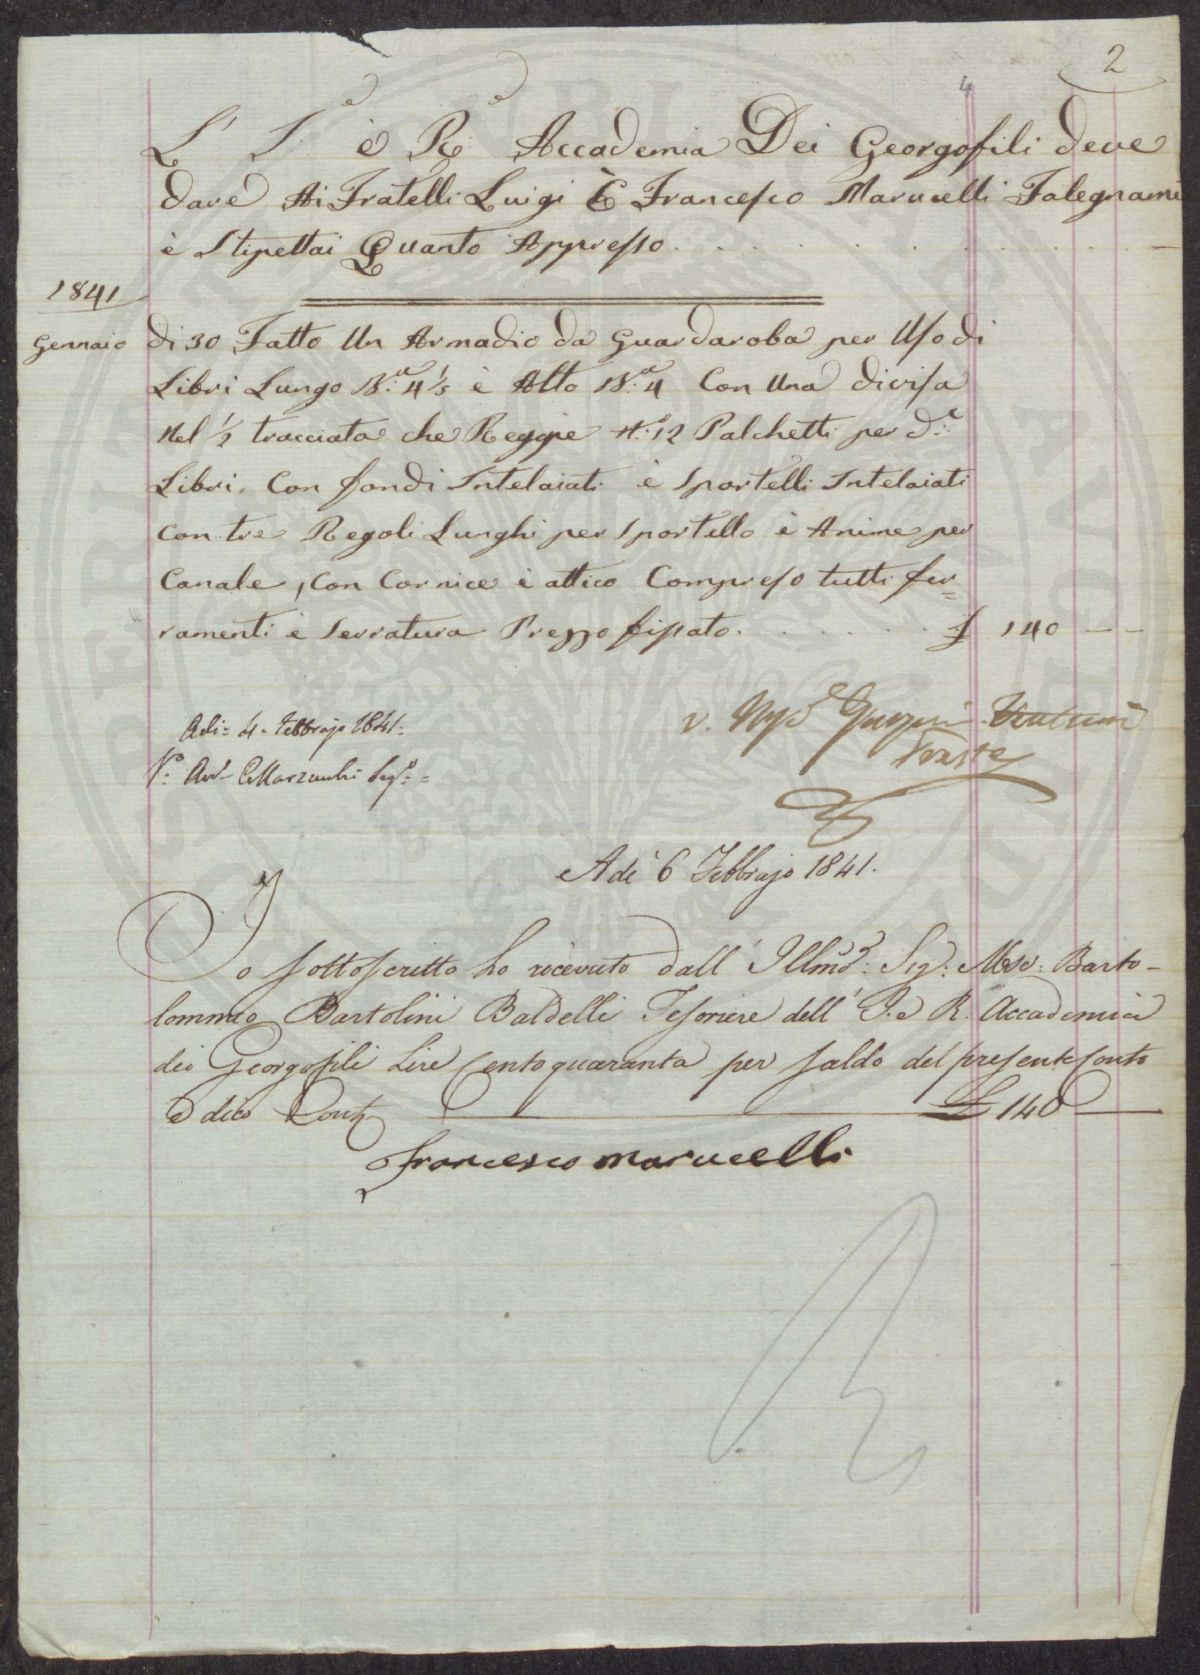 2
4
L' I.e è R.e Accademia Dei Georgofili deve
dare Ai Fratelli Luigi È Francesco Marucelli Falegnami
è Stipettai Quanto Appresso . . . . . . . .
1841
Gennaio di 30 Fatto Un Armadio da Guardaroba per Uso di
Libri Lungo B.a 4 1/3 è Alto B.a 4 Con Una divisa
Nel 1/2 tracciata che Reggie N.o 12 Palchetti per d.i
Libri, Con fondi Intelaiati è Sportelli Intelaiati
Con tre Regoli Lunghi per Sportello è Anime per
Canale, Con Cornice è attico Compreso tutti fer=
ramenti è Serratura Prezzo fissato . . . . . . £ 140 — —
Adi= 4. Febbrajo 1841.
V.o Avv. C Marzucchi Seg.o =
V.
Adi 6 Febbrajo 1841.
Io sottoscritto ho ricevuto dall' Illmo: Sig: Mse: Barto-
lommeo Bartolini Baldelli Tesoriere dell' I. e R. Accademia
dei Georgofili Lire Centoquaranta per saldo del presente Conto
e dico Cont. £ 140
Francesco Marucelli